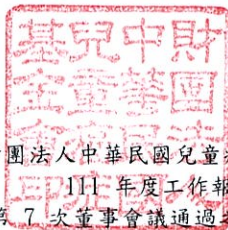 財團法人
中華民國
兒童癌症
基金會印
團法人中華民國兒童
111 年度工作報
第 7 次董事會議通過